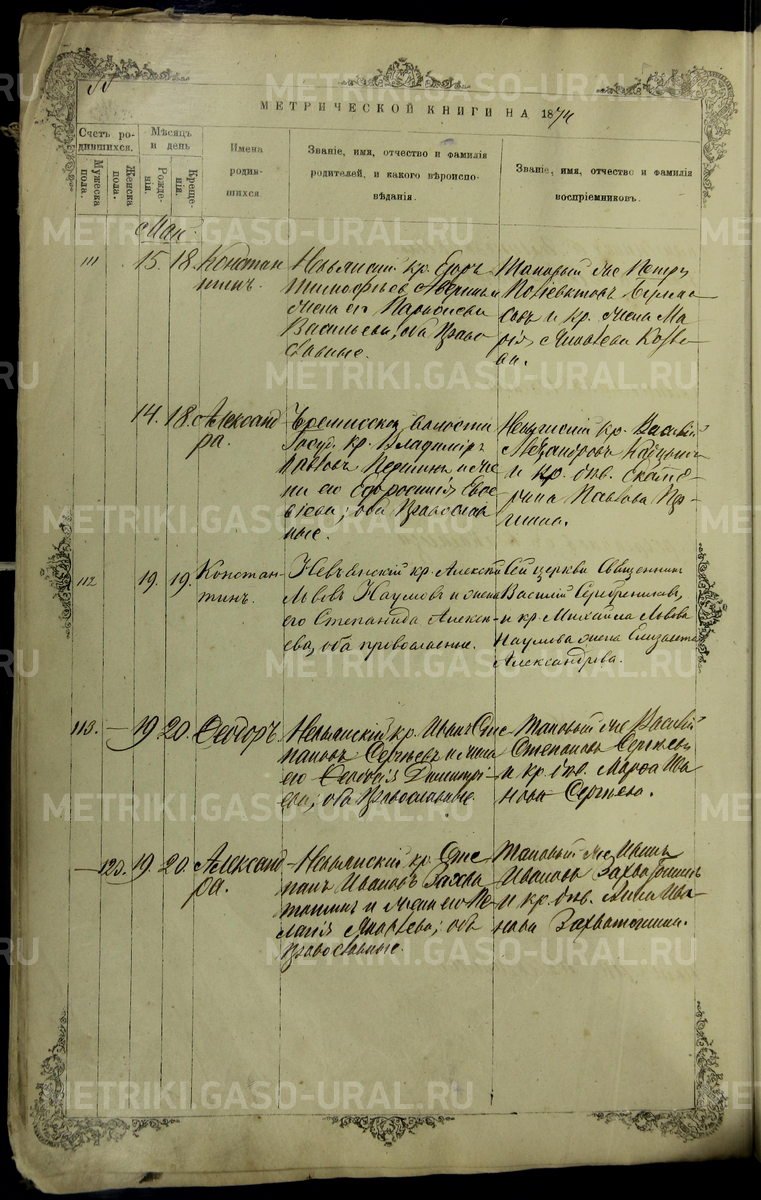 МЕТРИЧЕСКОЙ КНИГИ НА 1874
Счетъ ро-
дившихся.
Мужеска
пола.
Женска
пола.
Мѣсяцъ
и день
Рожде-
нія.
Креще-
нія.
Имена
родив-
шихся.
Званіе, имя, отчество и фамилія
родителей, и какого вѣроиспо-
вѣданія.
Званіе, имя, отчество и фамилія
воспріемниковъ.
Май.
111
15. 18. Констан
тинъ.
Невьянскій кр. Егоръ
Тимофѣевъ
жена его
Васильева, оба Право
славные.
Таковый же Петръ
и кр. жена Ма
рія Яковлева
14. 18. Александ
ра.
волости
Госуд. кр. Владиміръ
Павловъ и же
на его
оба Православ
ные.
Невьянскій кр. Василій
Александровъ
и кр. дѣв. Екате
рина Павлова
112
19. 19. Констан-
тинъ.
Невьянскій кр. Алексѣй
Львовъ Наумовъ и жена
его Степанида Алексѣ-
ева, оба православные.
Сей церкви Священникъ
Василій Серебренниковъ,
и кр. Михайла Львова
Наумова жена Елизавета
Александрова.
113. 19 20. Ѳеодоръ.
Невьянскій кр. Иванъ Сте
пановъ Сергѣевъ и жена
его Димитрі-
ева; оба Православные.
Таковый же Василій
Степановъ Сергѣевъ
и кр. дѣв. Марѳа Ива
нова Сергѣева.
120. 19. 20. Александ
ра.
Невьянскій кр. Сте
панъ Ивановъ Захва
тошинъ и жена его Пе
лагія Яковлева; оба
Православные.
Таковый же Иванъ
Ивановъ Захватошинъ
и кр. дѣв. Анна Ива
нова Захватошина.
METRIKI.GASO-URAL.RU